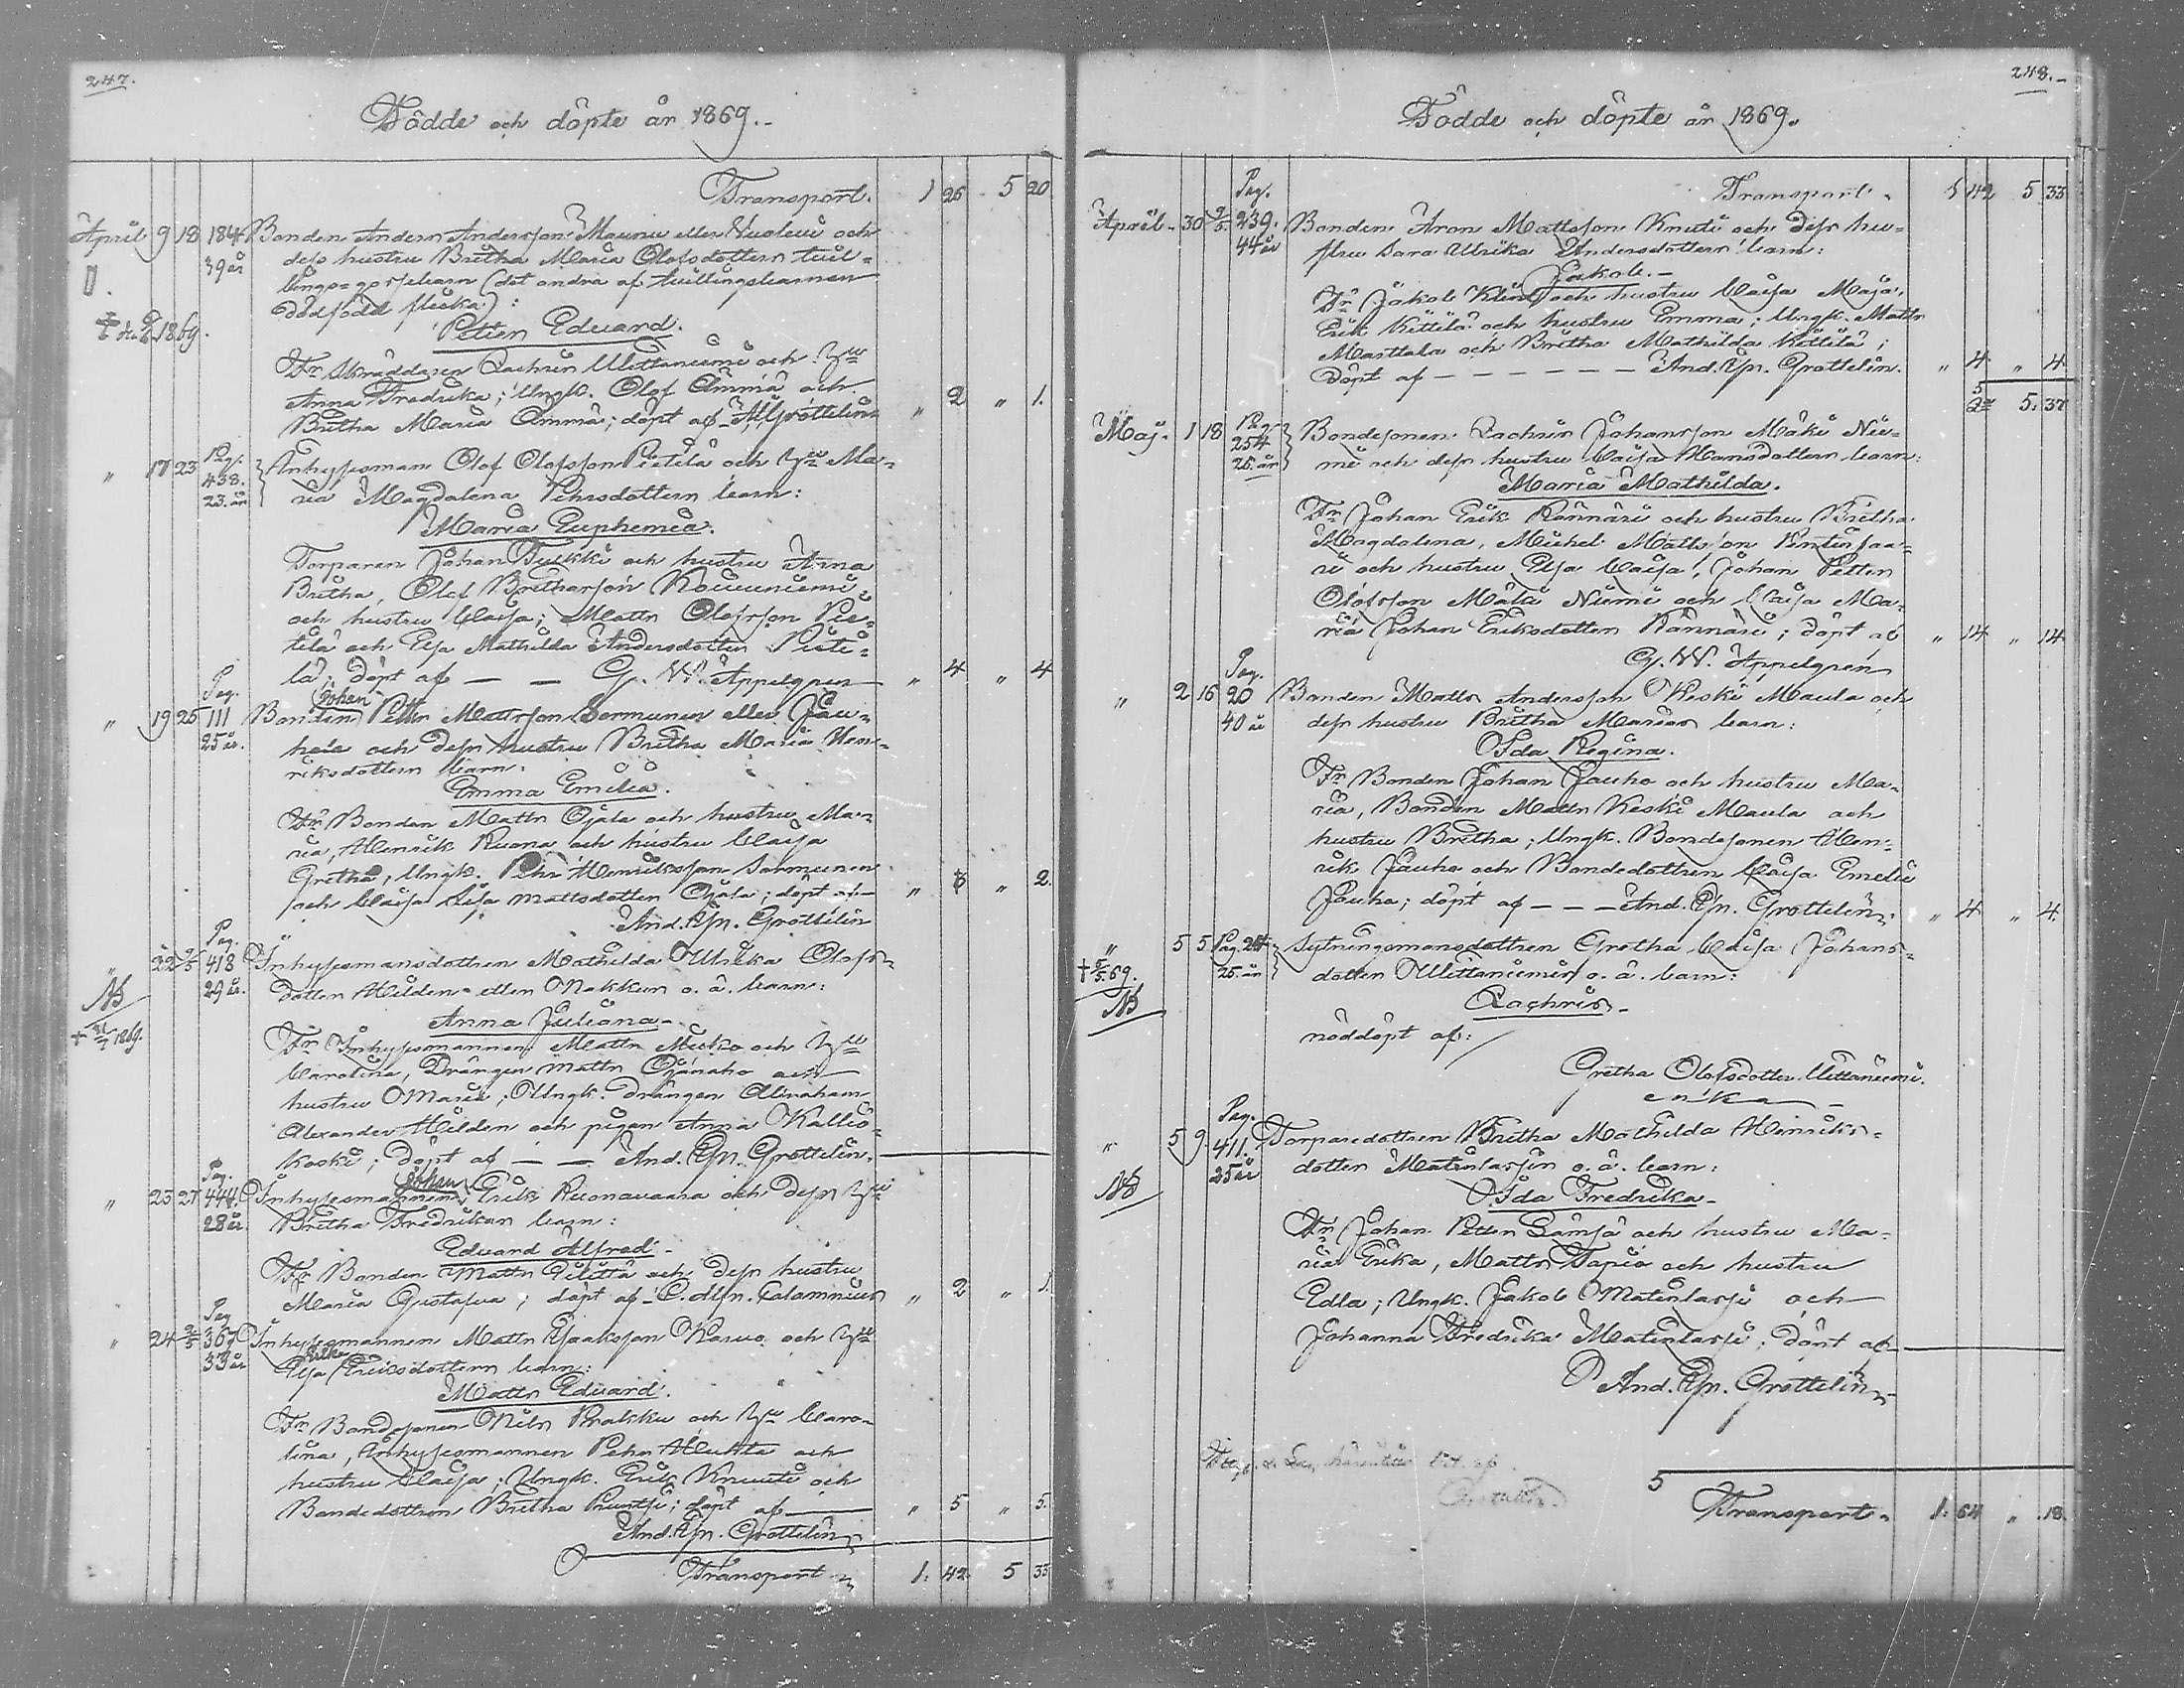 247.
Födde och döpte år 1869.
Transport. 1 26 5 20
April 9 18 184 Bonden Anders Andersson Maunu eller och
39 år dess hustru Britha Maria Olofsdotters tvil-
lings-gossebarn (det andra af tvillingsbarnen
dödfödd flicka):
1869.
Petter Eduard.
Fr Skräddaren Zachris Ulittaniemi och Hu
Anna Fredrika; Ungk. Olof Ämmä och
Britha Maria Ämmä; döpt af Grottelin " 2 " 1.
" 17 23 Pag. 438. 23. år Inhysesman Olof Olofsson Pietilä och Hu Ma-
ria Magdalena Pehrsdotters barn:
Maria Euphemia.
Torparen Johan Tuikki och hustru Anna
Britha, Olof Kouvuniemi
och hustru Caisa; Matts Olofsson Pie-
tilä och Elsa Mathilda Andersdotter Pieti-
lä; döpt af — — G. W. Appelgren " 4 " 4
" 19 25 Pag. 111 25 år. Bonden Johan Petter Mattsson Sormunen eller Jau-
ho och dess hustru Britha Maria Hen-
riksdotters barn.
Emma Emilia.
Fr Bonden Matts Ojala och hustru Ma-
ria, Henrik Ruona och hustru Caisa
Gretha, Ungk. Pehr Henriksson Sormunen
och Caisa Lisa Mattsdotter Ojala; döpt af " 3 " 2.
And. Grottelin
" 22 Pag. 418 29 år. Inhysesmansdottren Mathilda Ulrika Olofs-
dotter Hilden eller Nakkun o. ä. barn:
NB
Anna Juliana.
1869.
Fr Inhysesmannen Matts Micko och Hu
Carolina, Drängen Matts Ojanaho och
hustru Maria; Ungk. drängen Abraham
Alexander Hilden och pigan Anna Kallio-
koski; döpt af — — And. Grottelin.
" 23 27 Pag. 444. 28 år. Inhysesmannen Johan Erik Ruonavaara och dess Hu
Britha Fredrikas barn:
Eduard Alfred.
Fr Bonden Matts och dess hustru
Maria Gustafva; döpt af C. Calamnius " 2 " 1.
" 24 Pag 367 33 år Inhysesmannen Matts Isaksson Karvo och Hu
Elsa Ulrika Ericsdotters barn:
Matts Eduard.
Fr Bondesonen Nils Prakku och Hu Caro-
lina, Inhysesmannen Pehr Huhta och
hustru Caisa; Ungk. Erik Knuuti och
Bondedottren Britha döpt af — " 5 " 5.
And. Grottelin
Transport 1. 42 5 33
248.
Födde och döpte år 1869.
Transport. 1 42 5 33
April 30 9/5. Pag. 239. 44 år Bonden Aron Mattsson Knuti och dess hu-
stru Sara Ulrika Andersdotters barn:
Jakob.
Fr Jakob och hustru Caisa Maja,
Erik Kittilä och hustru Emma; Ungk. Matts
Marttala och Britha Mathilda Kittilä;
döpt af — — — — — — And. Grottelin. " 4 " 4
5. 37
Maj. 1 18 Pag. 254 26. år Bondesonen Zachris Johansson Mäki Nie-
mi och dess hustru Caisa Hansdotters barn:
Maria Mathilda.
Fr Johan Erik Rännäri och hustru Britha
Magdalena, Michel Mattsson Pentinsaa-
ri och hustru Elsa Caisa, Johan Petter
Olofsson Mäki Niemi och Caisa Ma-
ria Johan Eriksdotter Rännäri; döpt af " 14 " 14
G. W. Appelgren
" 2 16 Pag. 20 40 år Bonden Matts Andersson Keski Maula och
dess hustru Britha Marias barn:
Ida Regina.
Fr Bonden Johan Jauho och hustru Ma-
ria, Bonden Matts Keski Maula och
hustru Britha; Ungk. Bondesonen Hen-
rik Jauho och Bondedottren Caisa Emelie
Jauho; döpt af — — — And. Grottelin. " 4 " 4
" 5 5 25. år Sytningsmansdottren Gretha Caisa Johans-
dotter Ulittaniemi o. ä. barn:
5/5. 69.
NB
Zachris.
nöddöpt af:
Gretha Olofsdotter Ulittaniemi.
enka
" 5 9 Pag. 411. 25 år Torparedottren Britha Mathilda Henriks-
dotter Matinlassin o. ä. barn:
NB
Ida Fredrika.
Fr Johan Petter Lämsä och hustru Ma-
ria Erika, Matts Tapio och hustru
Edla; Ungk. Jakob Matinlassi och
Johanna Fredrika Matinlassi; döpt af
And. Grottelin
5
Transport. 1. 64 " 18.